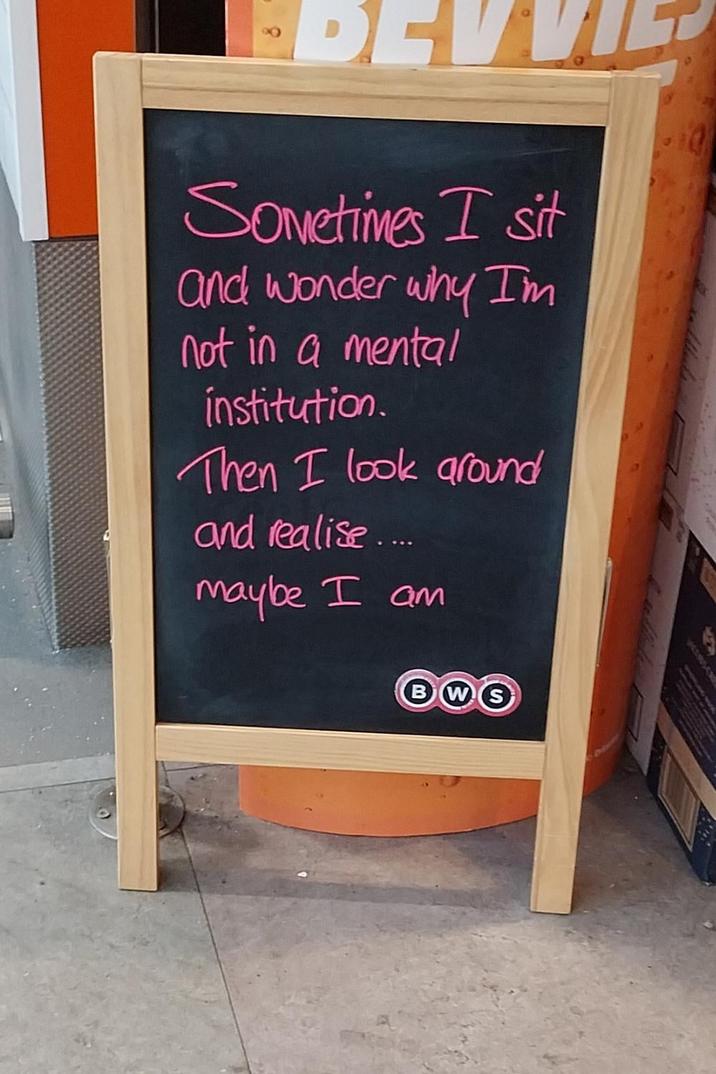 BEVVIES
Sometimes I sit
and wonder why I'm
not in a mental
institution.
Then I look around
and realise....
maybe I am
BWS